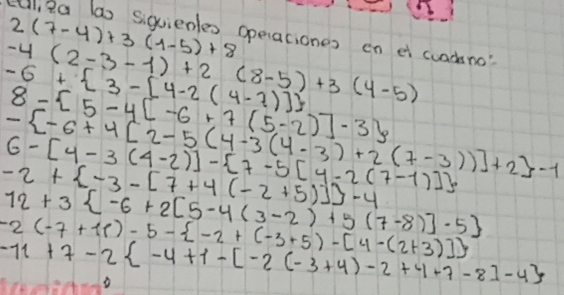 las siguientes operaciones en el cuaderno:
2(7-4)+3(1-5)+8
-4(2-3-1)+2(8-5)+3(4-5)
-6+{3-[4-2(4-7)]}
8-{5-4[-6+7(5-2)]-3}
-{-6+4[2-5(4-3(4-3)+2(7-3))]+2}-1
6-[4-3(4-2)]-{7-5[4-2(7-1)]}
-2+{-3-[7+4(-2+5)]}-4
12+3{-6+2[5-4(3-2)+5(7-8)]-5}
-2(-7+11)-5-{-2+(-3+5)-[4-(2+3)]}
-11+7-2{-4+1-[-2(-3+4)-2+4+7-8]-4}